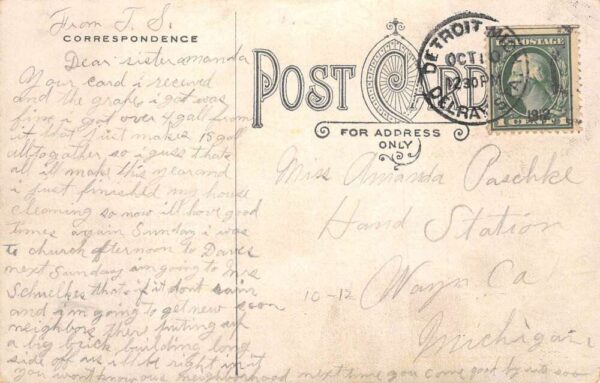 From J. S.
CORRESPONDENCE
Dear sister amanda
Your card i received
and the grapes i got was
fine i got over 4 gall from
it that just makes 15 gall
alltogather so i guss thats
all ill make this year and
i just finished my house
cleaming so now ill have good
times again Sunday i was
to church afternoon to Daves
next Sunday am going to Mrs
Schuelkes thats if it dont rain
and i'm going to get new soon
neighbors there puting up
a big brick building long
side of us ill be right in it
You wont know our neighborhood next time you come goot by write soon
POST CARD
FOR ADDRESS
ONLY
DETROIT MICH.
OCT 10
12 30 PM
DELRAY STA.
U.S. POSTAGE
1 CENT 1
Miss Amanda Paschke
Hand Station
Wayn Co
10-12
Michigan